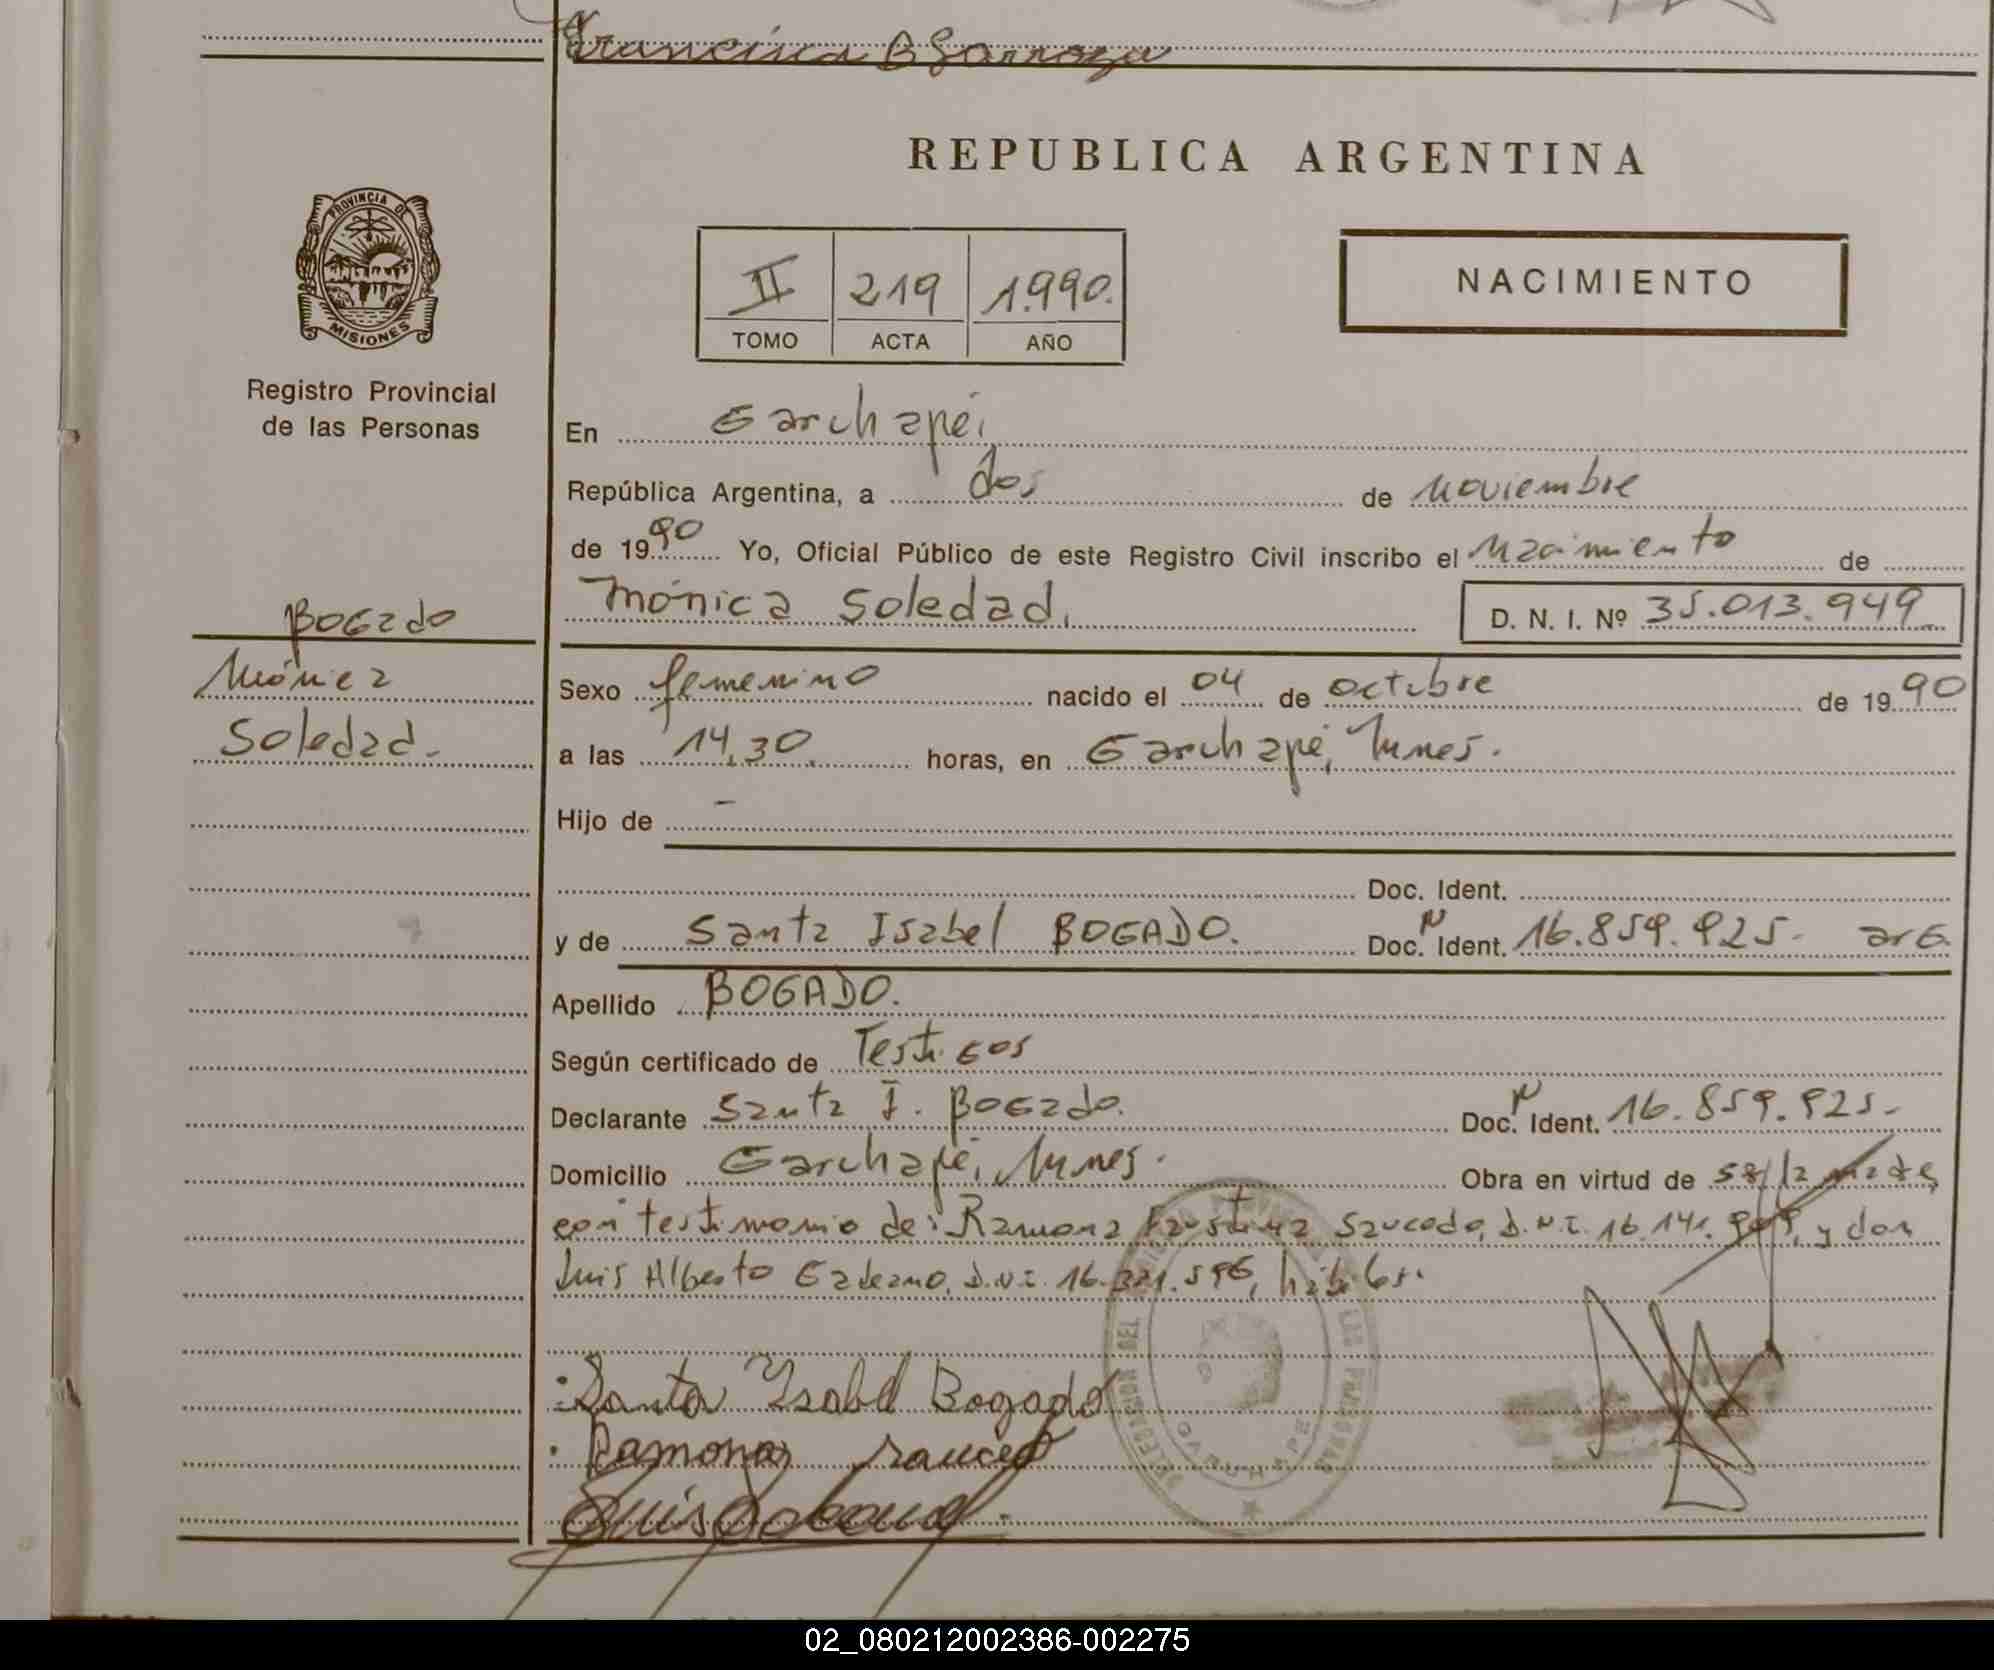 Francisca B Garroza
REPUBLICA ARGENTINA
PROVINCIA DE
MISIONES
II 219 1.990.
TOMO ACTA AÑO
NACIMIENTO
Registro Provincial
de las Personas
En Garuhapé,
República Argentina, a dos de noviembre
de 1990 Yo, Oficial Público de este Registro Civil inscribo el nacimiento de
Mónica Soledad, D. N. I. Nº 35.013.949
BOGado
Mónica
Soledad.
Sexo femenino nacido el 04 de octubre de 1990
a las 14,30 horas, en Garuhapé,
Hijo de -
Doc. Ident.
y de Santa Isabel BOGADO. Doc. N Ident. 16.859.925- arG.
Apellido BOGADO.
Según certificado de Testigos
Declarante Santa I. BOGado. Doc. N Ident. 16.859.925-
Domicilio Garuhapé, Obra en virtud de
con testimonio de: Ramona Faustina Saucedo, D.N.I. 16.141. y don
Luis Alberto D.N.I. 16.321.596, hábiles.
Santa Ysabel Bogado
Ramona
Luis
DELEGACION DEL REGISTRO PROVINCIAL DE LAS PERSONAS
GARUHAPE
02_080212002386-002275